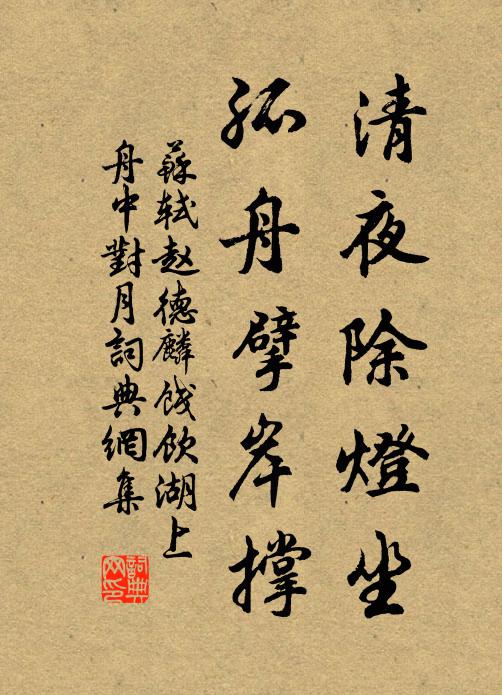 清夜除燈坐
孤舟擘岸撐
蘇軾赵德麟餞飲湖上
舟中對月詞典網集
詞典
网印